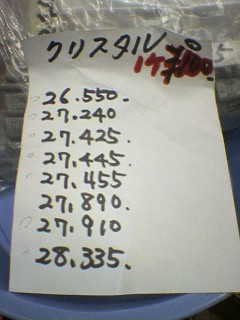 クリスタル
1ケ¥100.
26.550.
27.240
27.425.
27.445.
27.455
27.890.
27.910
28.335.